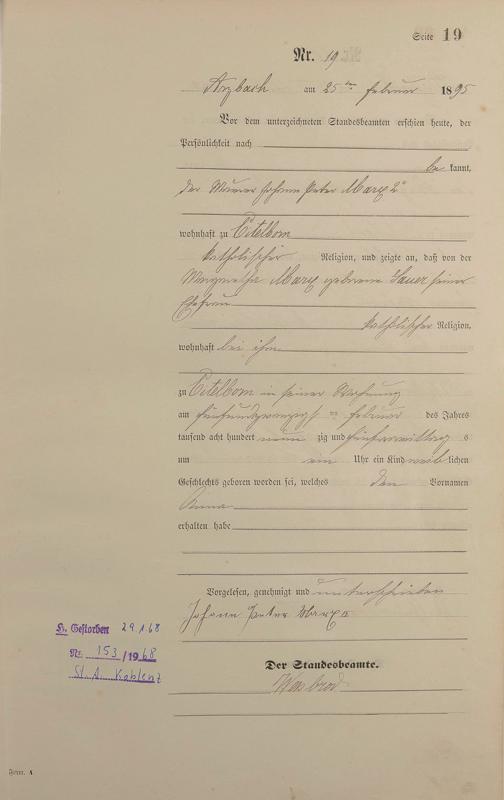 Seite 19
Nr. 19
Arzbach am 25ten Februar 1895
Vor dem unterzeichneten Standesbeamten erschien heute, der
Persönlichkeit nach
bekannt,
der Maurer Johann Peter Marx 2r
wohnhaft zu Eitelborn
katholischer Religion, und zeigte an, daß von der
Marx geborene Sauer seiner
Ehefrau
katholischer Religion,
wohnhaft bei ihm
zu Eitelborn in seiner Wohnung
am fünfundzwanzigsten Februar des Jahres
tausend acht hundert neunzig und fünf Vormittags
um ein Uhr ein Kind weiblichen
Geschlechts geboren worden sei, welches den Vornamen
Anna
erhalten habe
Vorgelesen, genehmigt und unterschrieben
Johann Peter Marx II
H. Gestorben 29.1.68
Nr. 153/1968
St. A. Koblenz
Der Standesbeamte.
Weisbrod
Form. A